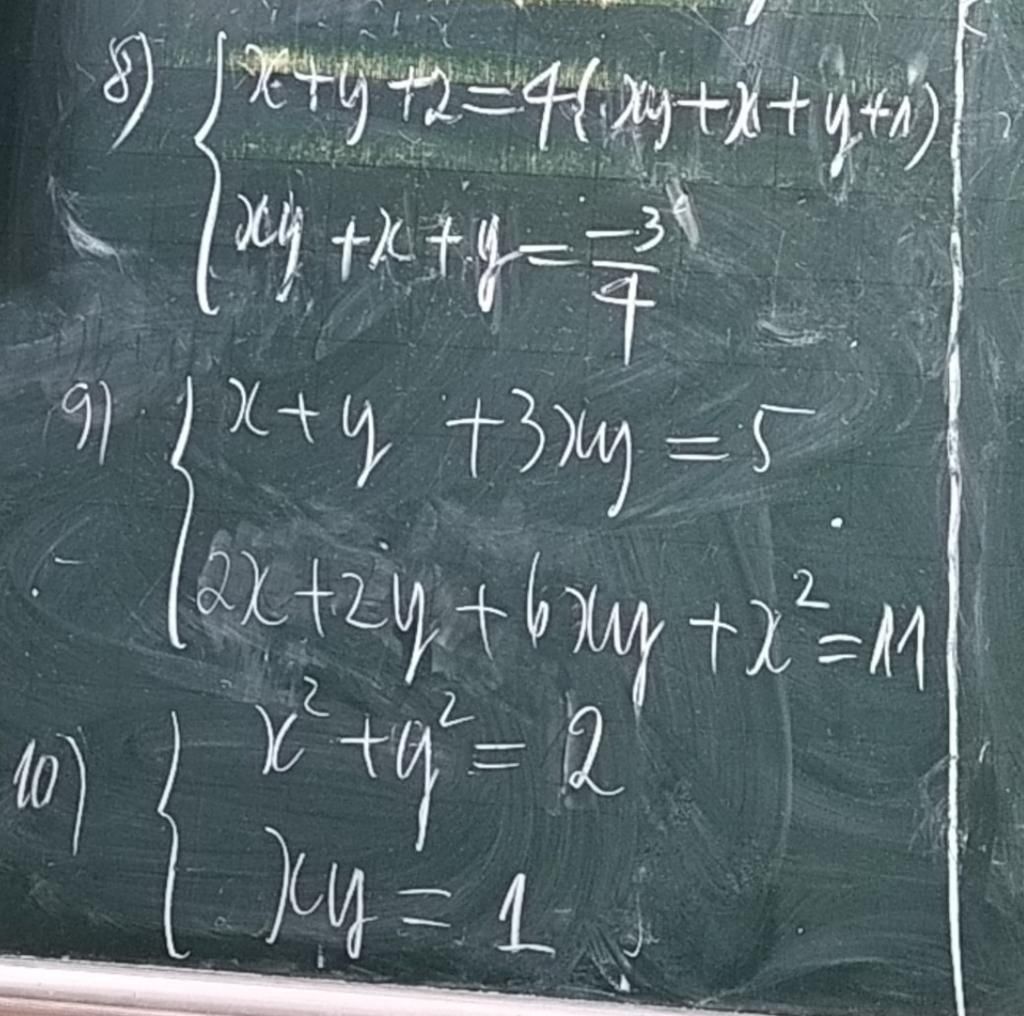 8) { x+y+2=4(xy+x+y+1)
xy+x+y=-3/4
9) { x+y+3xy=5
2x+2y+6xy+x²=11
10) { x²+y²=2
xy=1